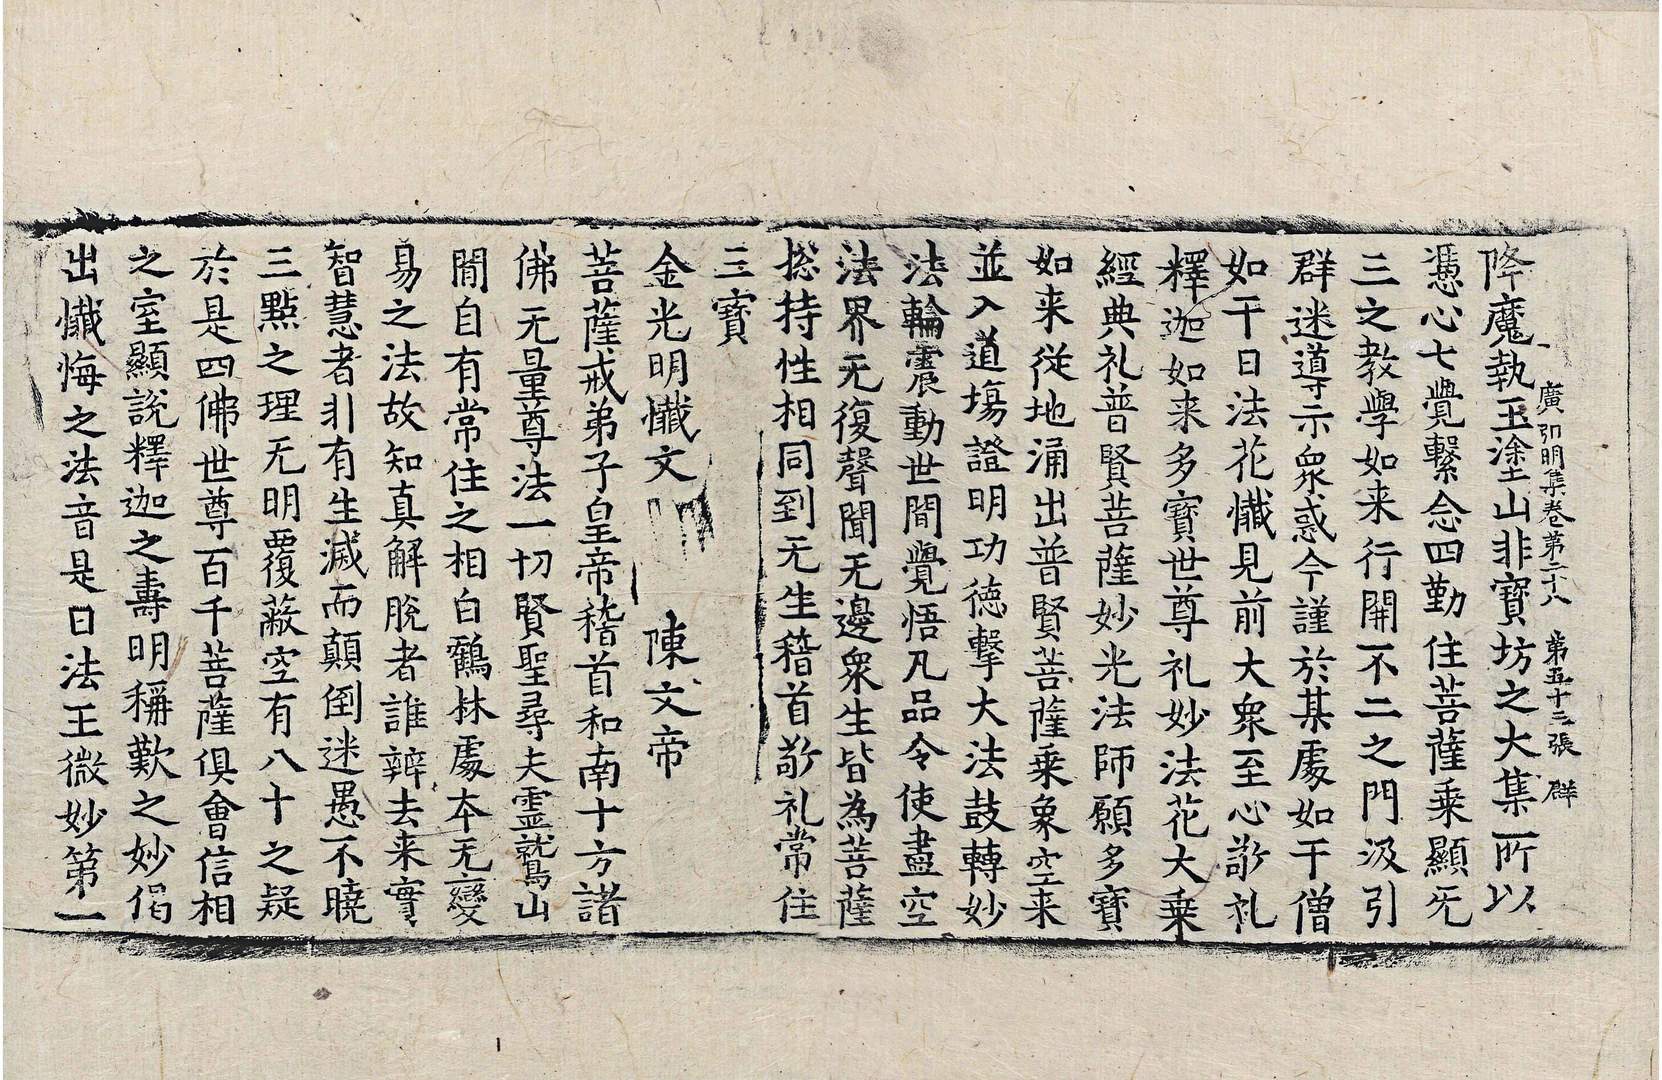 廣弘明集卷第二十八　第五十三張　群
降魔執玉塗山非寶坊之大集所以
憑心七覺繫念四勤住菩薩乗顯无
三之教學如来行開不二之門汲引
群迷導示衆惑今謹於某處如干僧
如干日法花懺見前大衆至心敬礼
釋迦如来多寶世尊礼妙法花大乗
經典礼普賢菩薩妙光法師願多寶
如来從地涌出普賢菩薩乗象空来
並入道場證明功德擊大法鼓轉妙
法輪震動世間覺悟凡品令使盡空
法界无復聲聞无邊衆生皆為菩薩
捴持性相同到无生稽首敬礼常住
三寶
金光明懺文　陳文帝
菩薩戒弟子皇帝稽首和南十方諸
佛无量尊法一切賢聖尋夫靈鷲山
間自有常住之相白鶴林處本无變
易之法故知真解脫者誰辨去来實
智慧者非有生滅而顛倒迷愚不曉
三點之理无明覆蔽空有八十之疑
於是四佛世尊百千菩薩俱會信相
之室顯說釋迦之壽明稱歎之妙偈
出懺悔之法音是曰法王微妙第一